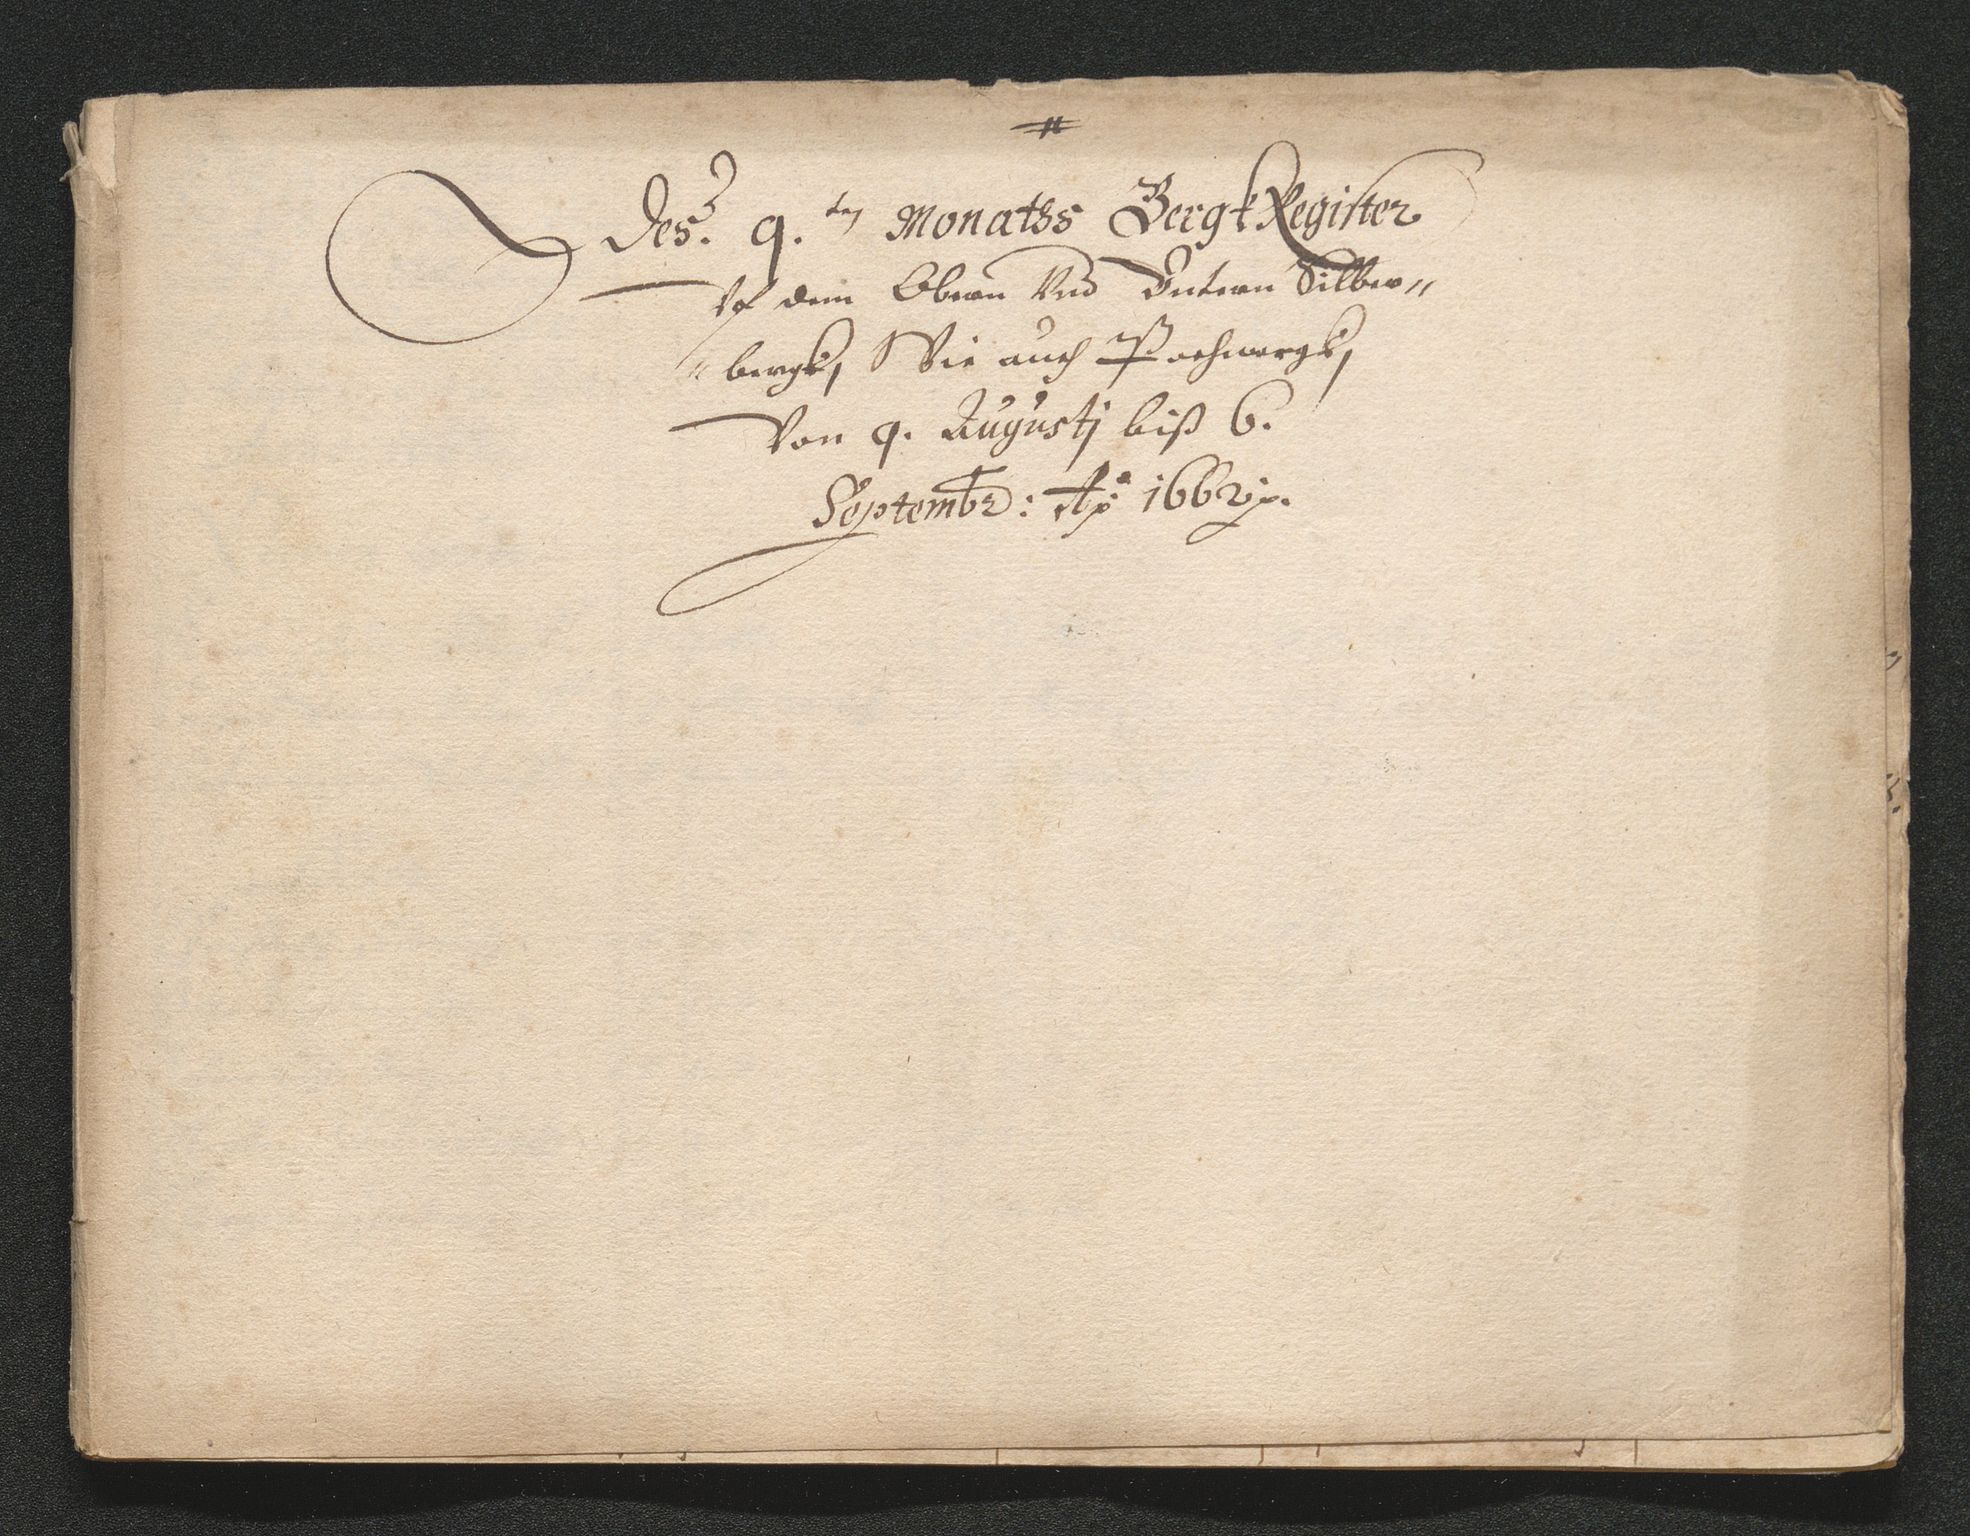 Des. 9.ten Monaths Bergk Register
Vf dem Obern Vnd Vntern Silber〃
〃bergk, Wie auch Pochwergk,
Von 9. Augustj biß 6.
Septembr: Ao 1662 p.